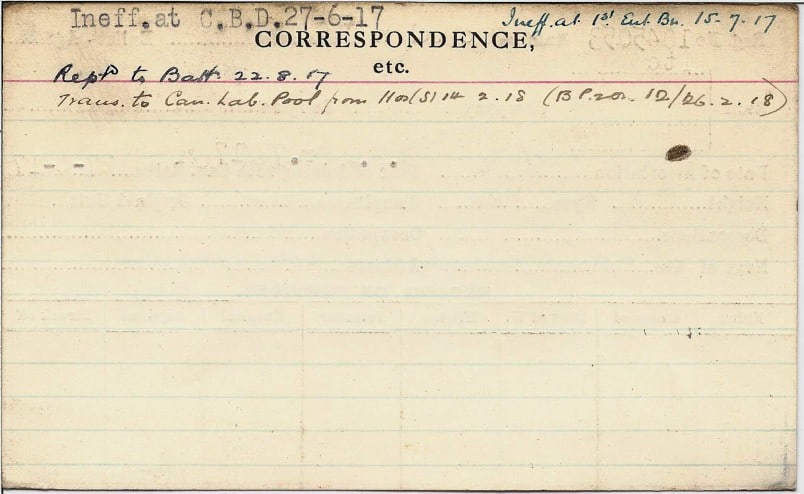 Ineff. at C.B.D. 27-6-17 Ineff. at 1st Ent. Bn. 15-7-17
CORRESPONDENCE,
etc.
Rept to Batt 22.8.17
Trans. to Can. Lab. Pool from Hos(S) 14 2.18 (B P.2or. 12/26.2.18)